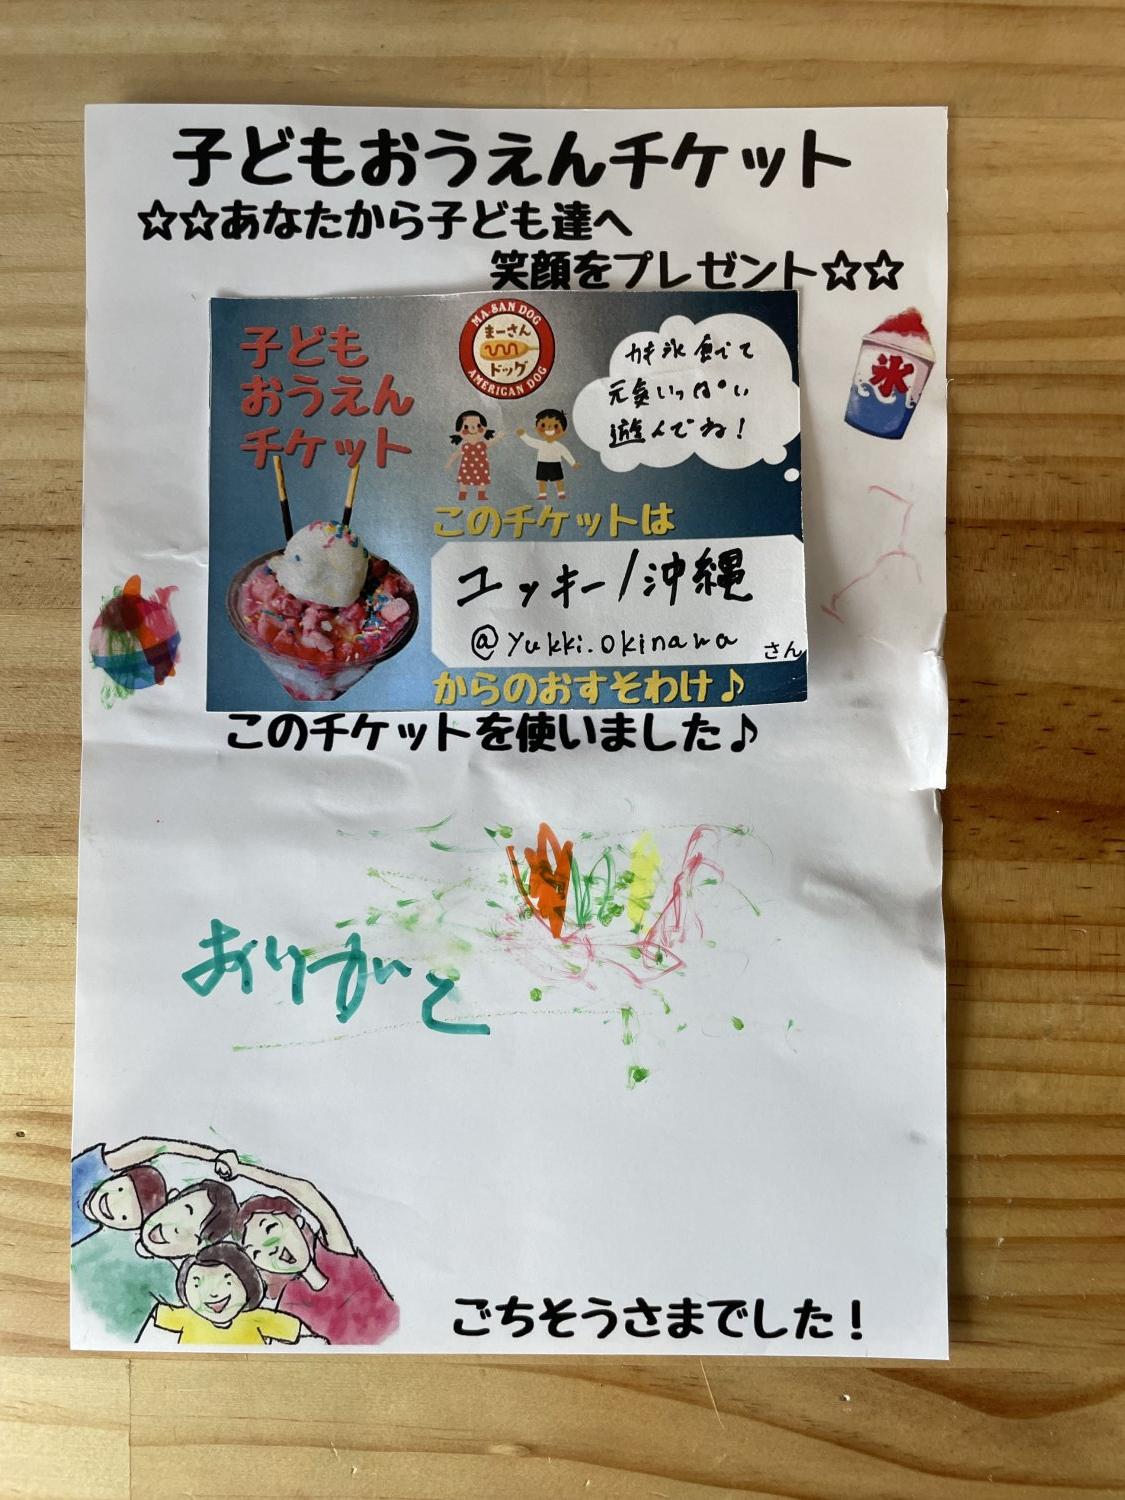 子どもおうえんチケット
☆☆あなたから子ども達へ
笑顔をプレゼント☆☆
子ども
おうえん
チケット
MA SAN DOG
まーさん
ドッグ
AMERICAN DOG
カキ氷食べて
元気いっぱい
遊んでね!
氷
このチケットは
ユッキー/沖縄
@yukki.okinawa さん
からのおすそわけ♪
このチケットを使いました♪
おりがと
ごちそうさまでした!